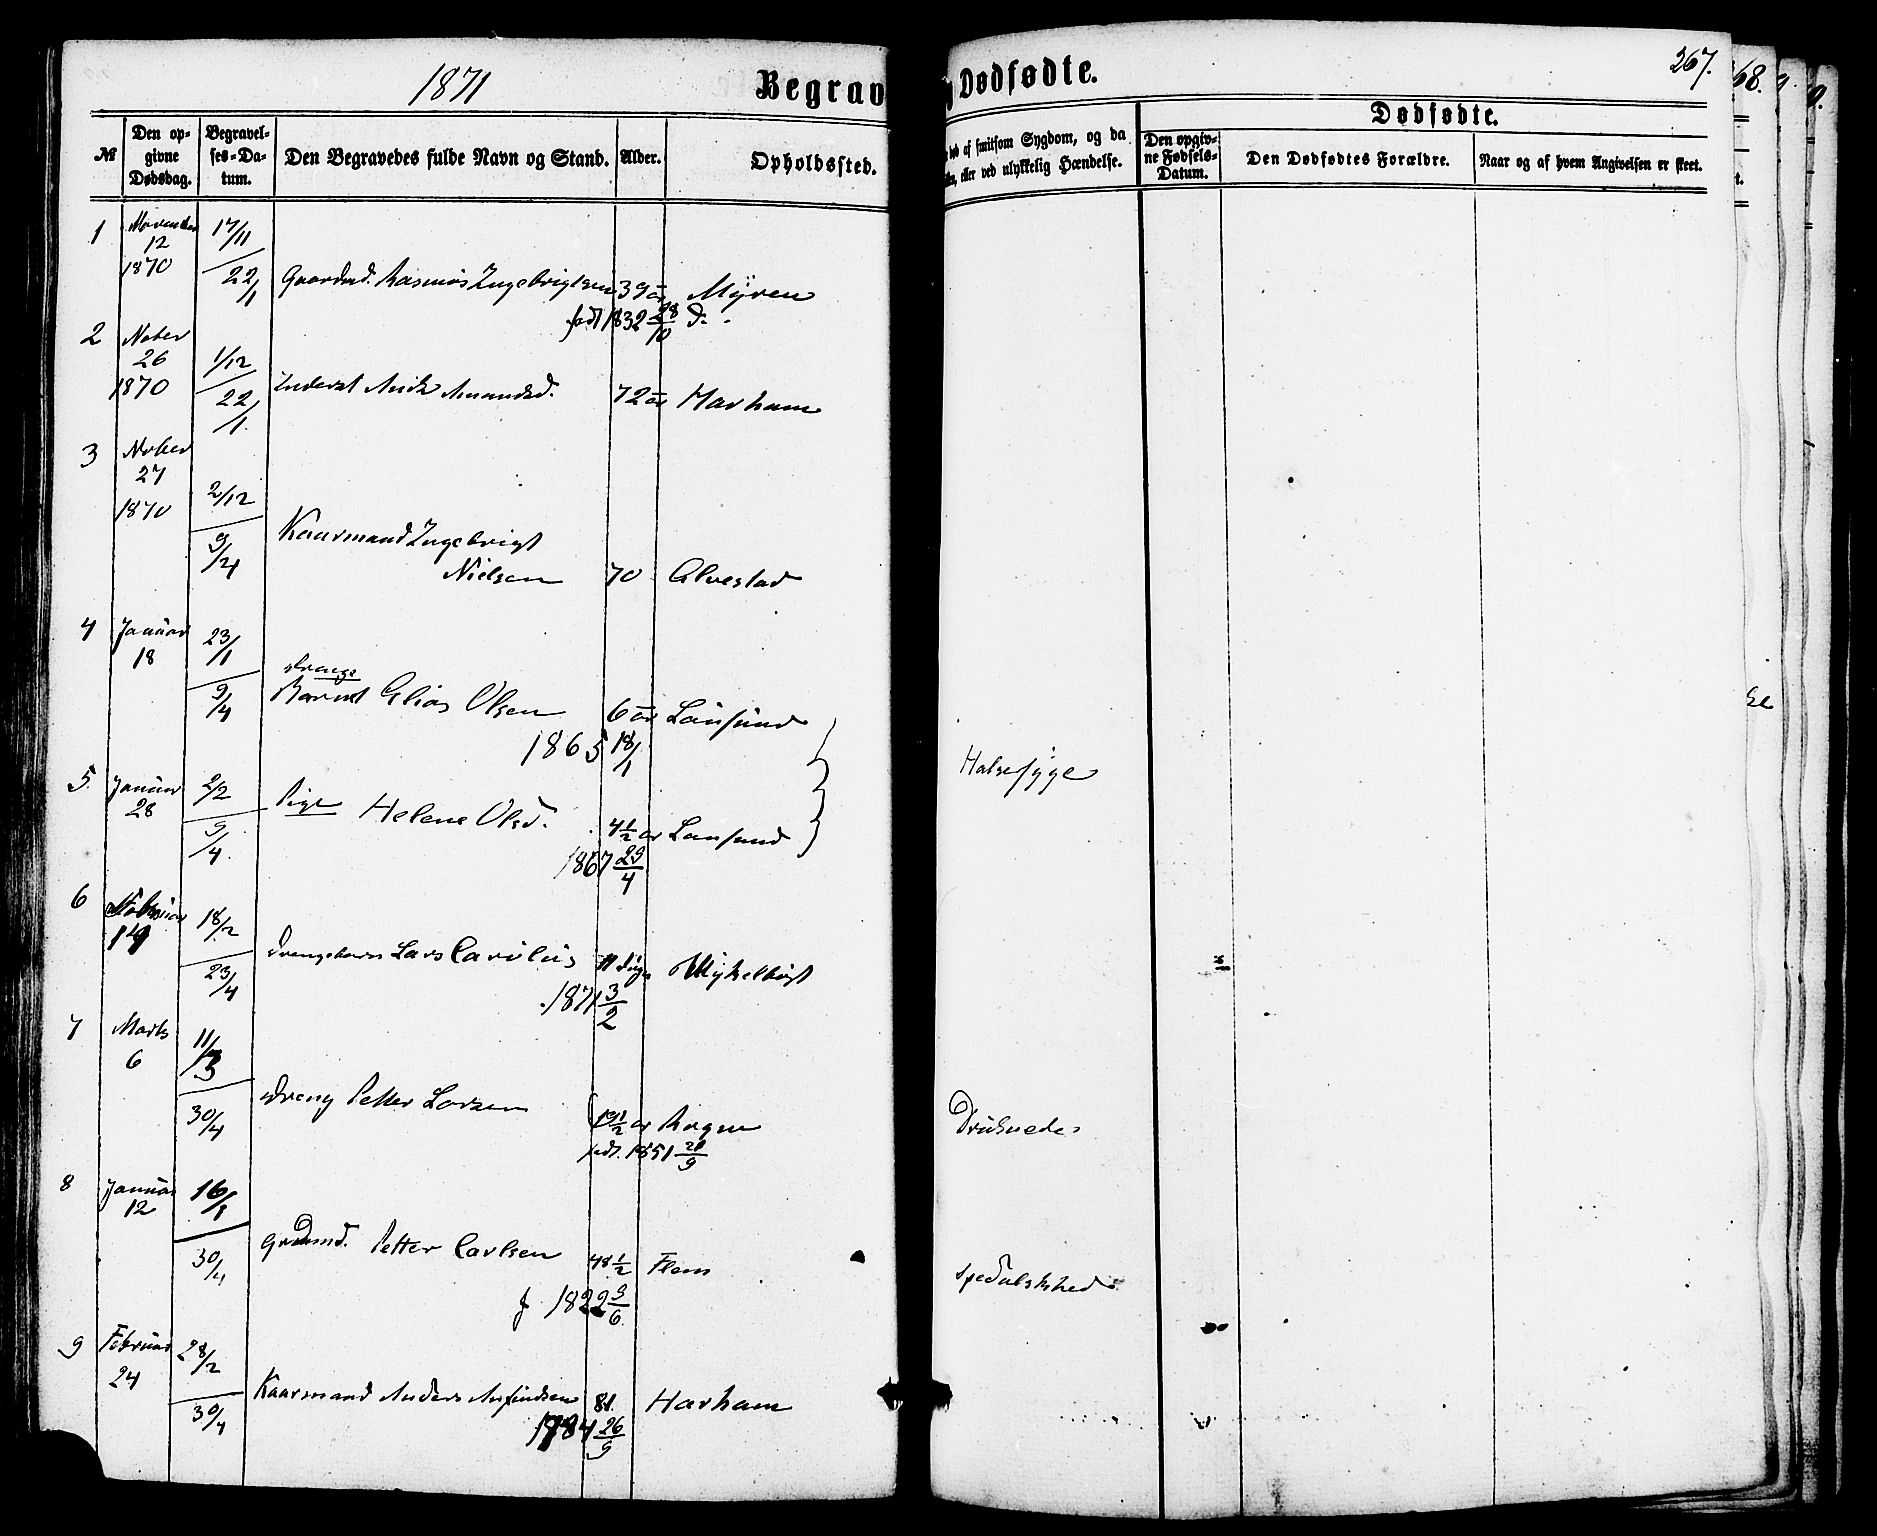 1871
Begrav
g Dødfødte.
267.
68.
9.
0.
№
Den op-
givne
Dødsdag.
Begravel-
ses-Da-
tum.
Den Begravedes fulde Navn og Stand.
Alder.
Opholdssted.
død af smitsom Sygdom, og da
eller ved ulykkelig Hændelse.
Dødfødte.
Den opgiv-
ne Fødsels-
Datum.
Den Dødfødtes Forældre.
Naar og af hvem Angivelsen er skeet.
1 November 12 1870 17/11 22/1
Gaardmd. Rasmus Ingebrigtsen 39 år Myren
født 1832 28/10 do.
2 Nober 26 1870 1/12 22/1
Inderst Amundsd. 72 år Harham
3 Nober 27 1870 2/12 9/4
Kaarmand Ingebrigt
Nielsen 70 Alvestad
4 Januar 18 23/1 9/4
drenge
Barnet Elias Olsen 6 år Lausund
1865 18/1
5. Januar 28 2/2 9/4
Pige Helene Olsd. 4 1/2 år Lausund
1867 29/4
Halssyge
6 Februar 14 18/2 23/4
Drengebarn Lars Carolus 11 dage Myklebust
1871 3/2
7 Marts 6 11/3 30/4
Dreng Petter Larsen 19 1/2 år Rogne
født. 1851 21/9
Druknede
8 Januar 12 16/1 30/4
Grdmd. Petter Carlsen 48 1/2 Flem
f. 1822 9/6
Spedalskhed
9 Februar 24 28/2 30/4
Kaarmand Anders Arfindsen 81. Harham
1784 26/9